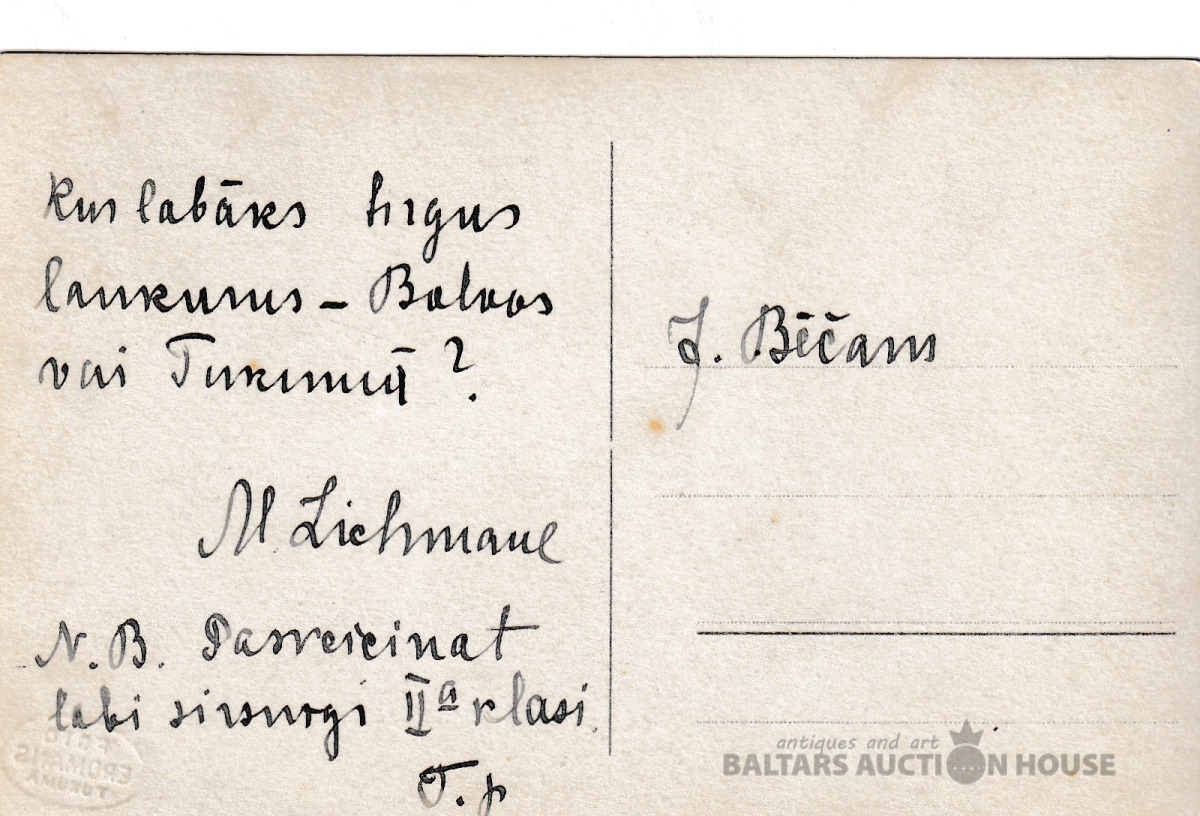 Kur labāks tirgus
laukums – Balvos
vai Tukumā?
M. Lichmane
N.B. Pasveicinat
labi sirsnīgi IIa klasi.
T. p
J. Bēčam
antiques and art
BALTARS AUCTION HOUSE
FOTO
ERDMANIS
TUKUMĀ